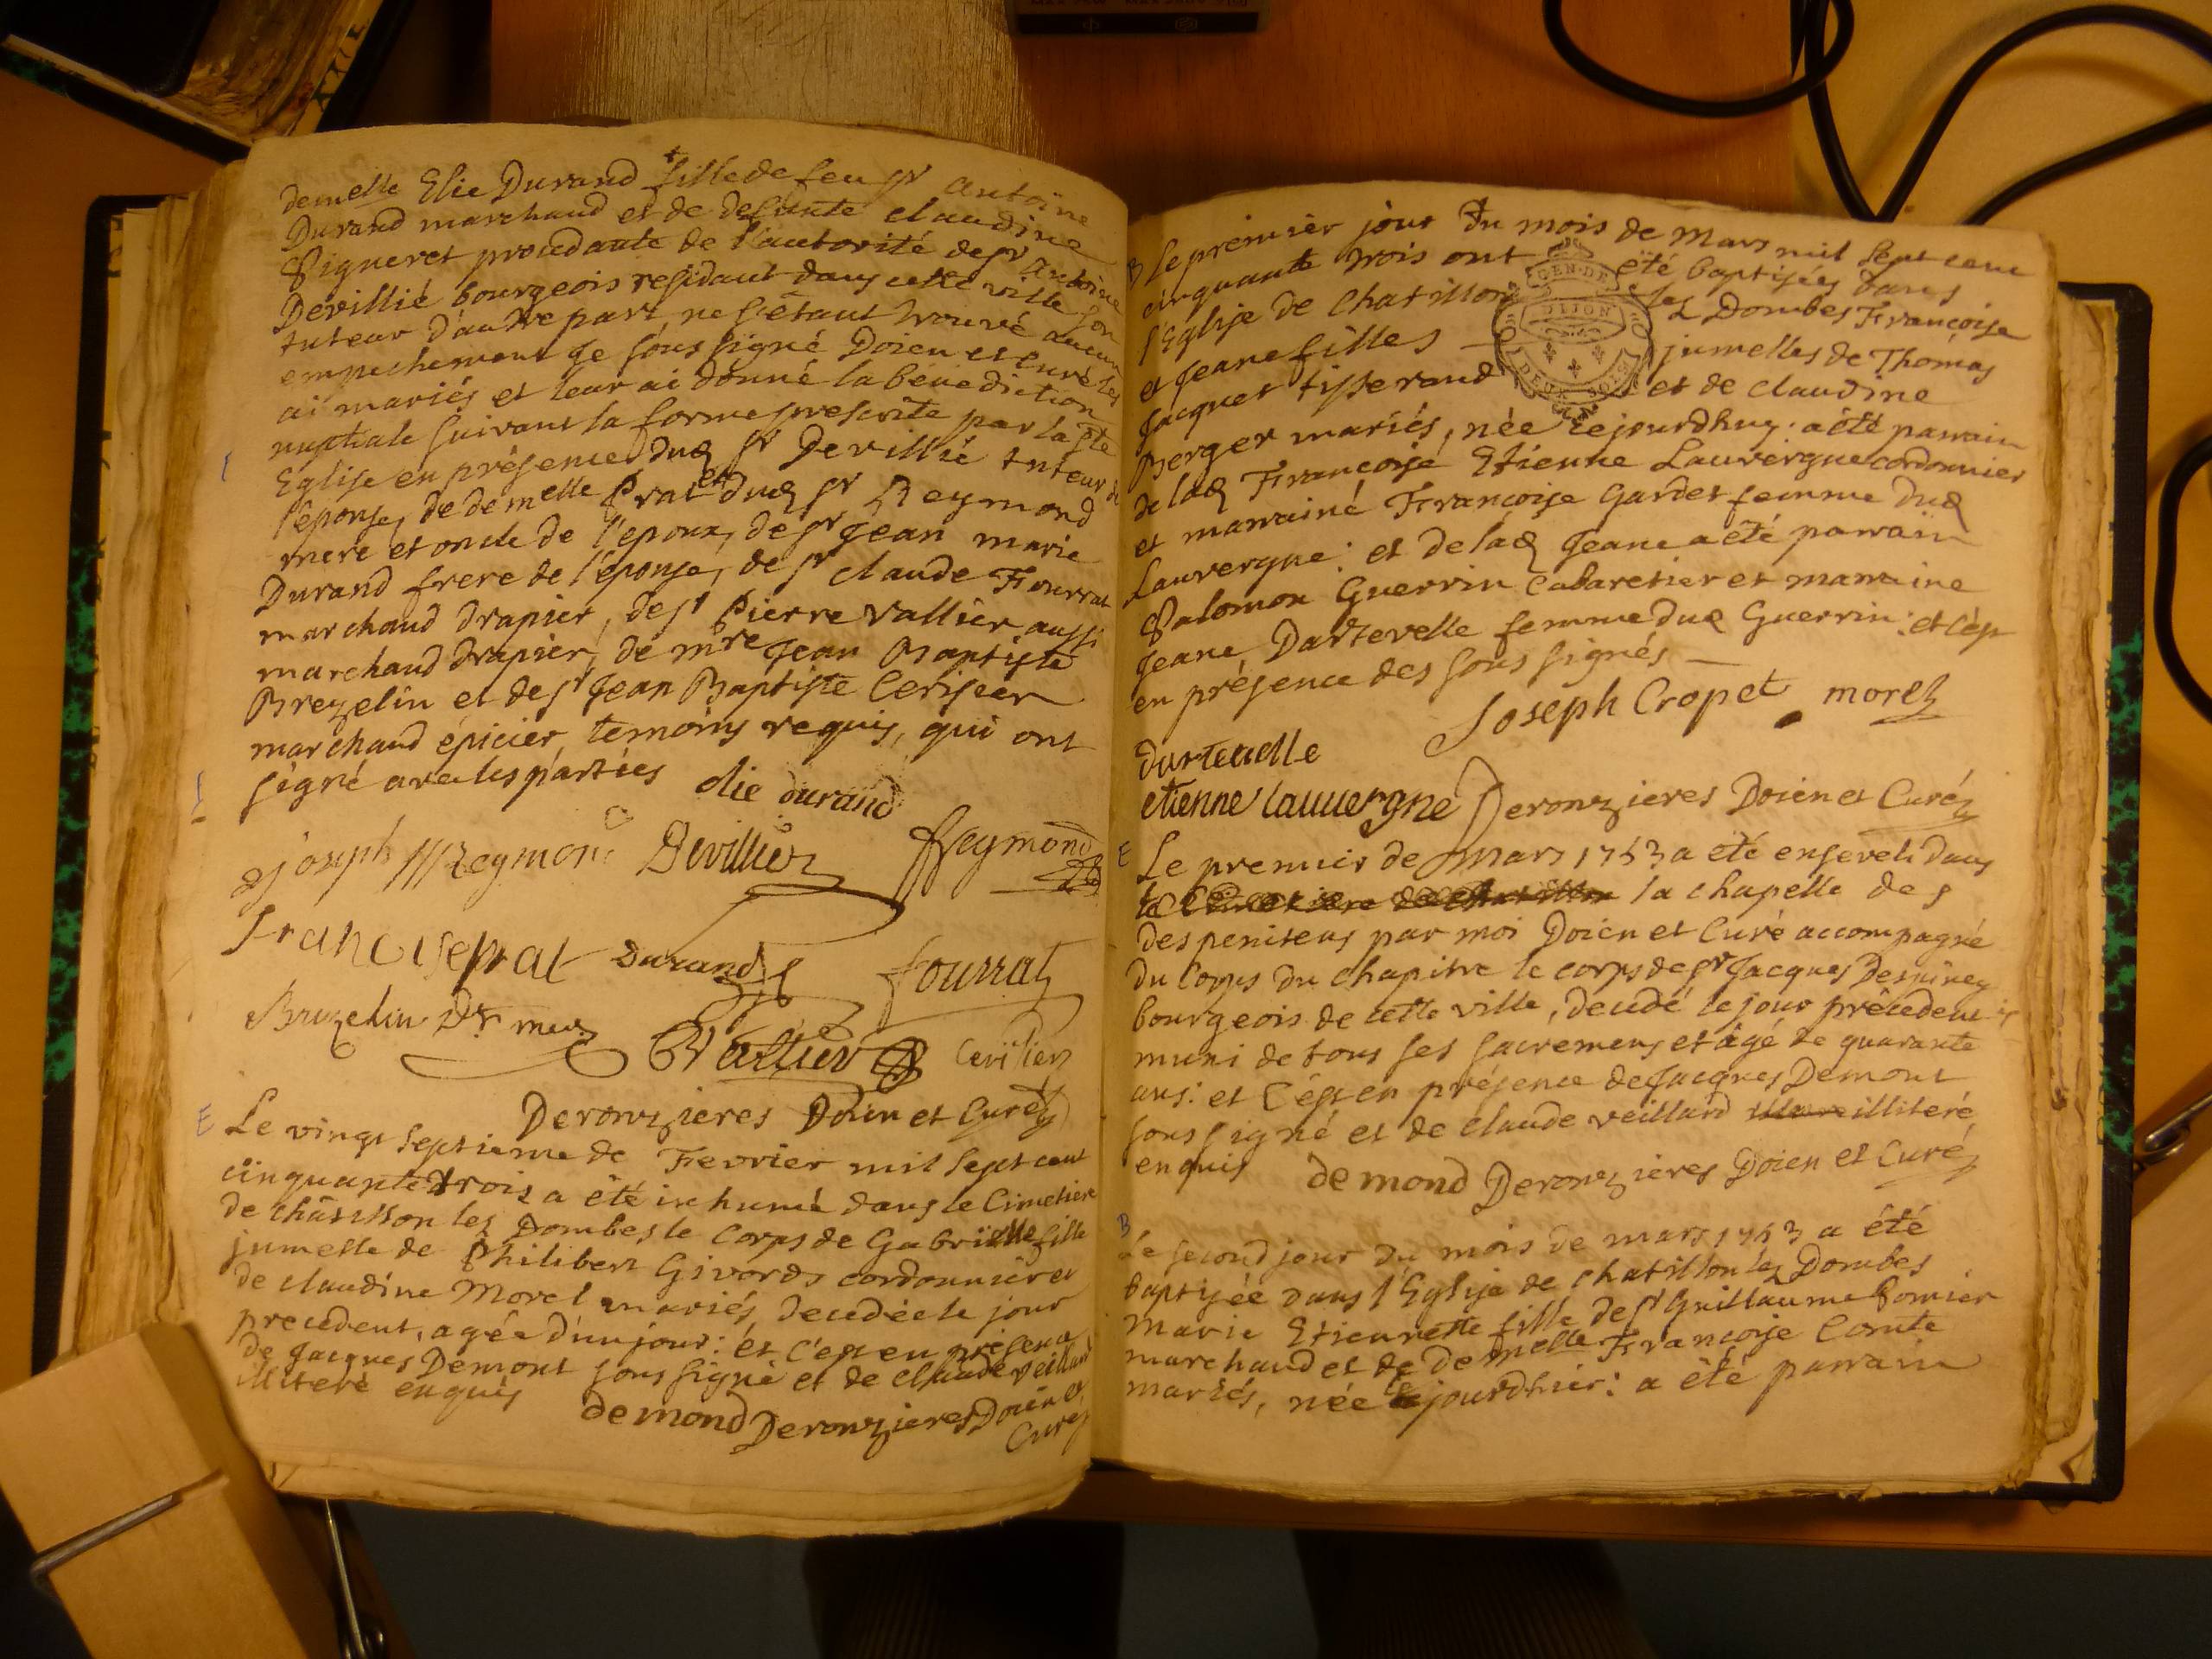 demelle Elie Durand + fille de feu sr Antoine
Durand marchand et de defunte claudine
Signeret procedante de l'autorité de sr Antoine
Devillié bourgeois residant dans cette ville son
tuteur d'autre part ne s'êtant trouvé aucun
empechement Je sous signé Doien et curé les
ai mariés et leur ai donné la bénediction
nuptiale suivant la forme prescrite par la ste
Eglise en présence dud sr Devillié tuteur de
l'épouse, de demelle Prat et dud sr Reymond
mere et oncle de l'epoux, de sr Jean marie
Durand frere de l'épouse, de sr claude Fourrat
marchand drapier, de sr Pierre vallier aussi
marchand drapier, de mre Jean Baptiste
Brezelin et de sr Jean Baptiste Cerisier
marchand épicier, temoins requis, qui ont
signé avec les parties
elie durand
joseph Reymon
Devillié
Reymond
Francise prat
Durand
fourrat
Bruzelin
Vallier
Cerisier
Deronzieres Doien et Curé
E Le vingt septieme de Fevrier mil sept cent
cinquante trois a êté inhumé dans le Cimetiere
de châtillon les Dombes, le Corps de Gabrielle fille
jumelle de Philibert Givords cordonnier et
de claudine Morel mariés, decedée le jour
precedent, agée d'un jour: et c'est en présence
de Jacques Demont sous signé et de claude veillard
illiteré enquis
demond Deronzieres Doien et
Curé
B Le premier jour du mois de Mars mil sept cent
cinquante trois ont été baptisées dans
l'Eglise de Chatillon les Dombes Francoise
et Jeane filles jumelles de Thomas
Jacquet tisserand et de claudine
GEN. DE
DIJON
DEUX SOLS
Berger mariés, née cejourdhuy: a été parrain
de lad Francoise Etienne Lauvergne cordonnier
et marrainé Françoise Gardet femme dud
Lauvergne: et de lad Jeane a été parrain
Salomon Guerrin Cabaretier et marraine
Jeane Dartevelle femme dud Guerrin: et c'est
en présence des sous signés
Joseph Cropet morel
dartevelle
etienne lauuergne Deronzieres Doien et Curé
E Le premier de Mars 1753 a été enseveli dans
la chapelle des
des penitens par moi Doien et Curé accompagné
du Corps du chapitre le corps de sr Jacques Despiney
bourgeois de cette ville, decedé le jour précedent
muni de tous ses sacremens et âgé de quarante
ans: et c'est en présence de Jacques Demont
sous signé et de claude veillard illiteré
enquis
demond Deronzieres Doien et Curé
B Le second jour du mois de mars 1753 a été
baptisée dans l'Eglise de chatillon les Dombes
Marie Etiennette fille de sr Guillaume
marchand et de demelle Francoise Comte
mariés, née le jourdhier: a été parrain